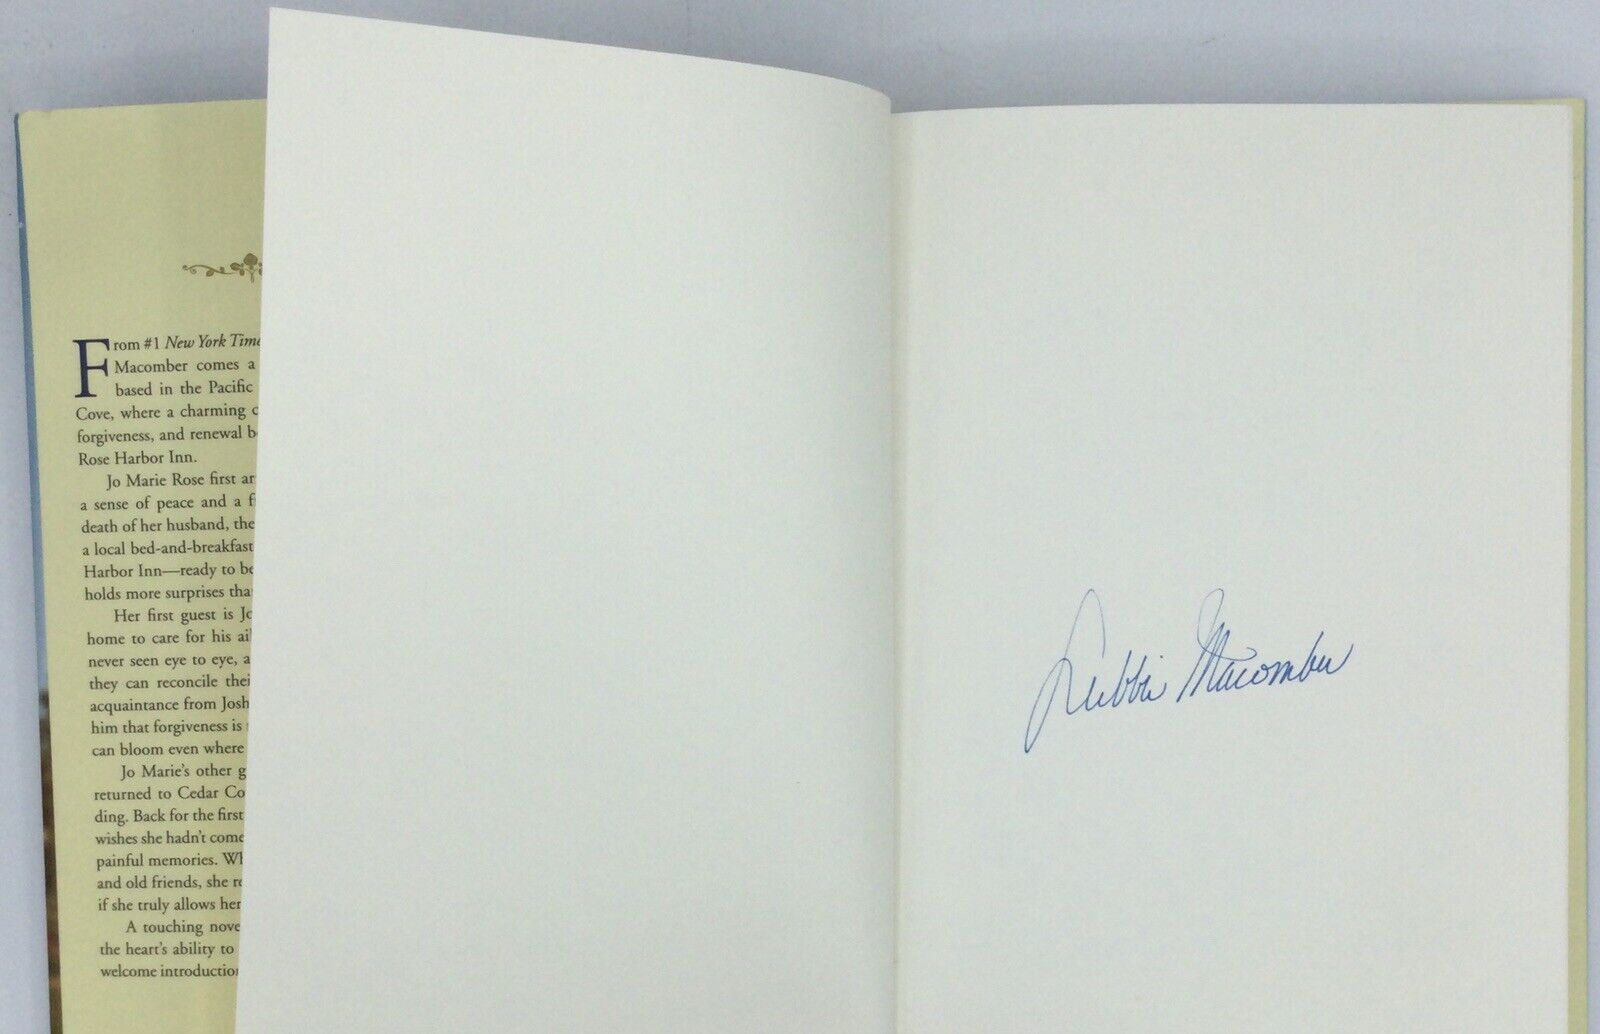 From #1 New York Time
Macomber comes a
based in the Pacific
Cove, where a charming c
forgiveness, and renewal b
Rose Harbor Inn.
Jo Marie Rose first ar
a sense of peace and a f
death of her husband, the
a local bed-and-breakfast
Harbor Inn—ready to be
holds more surprises tha
Her first guest is Jo
home to care for his ail
never seen eye to eye, a
they can reconcile thei
acquaintance from Josh
him that forgiveness is
can bloom even where
Jo Marie's other g
returned to Cedar Co
ding. Back for the first
wishes she hadn't come
painful memories. Wh
and old friends, she re
if she truly allows her
A touching nove
the heart's ability to
welcome introduction
Debbie Macomber